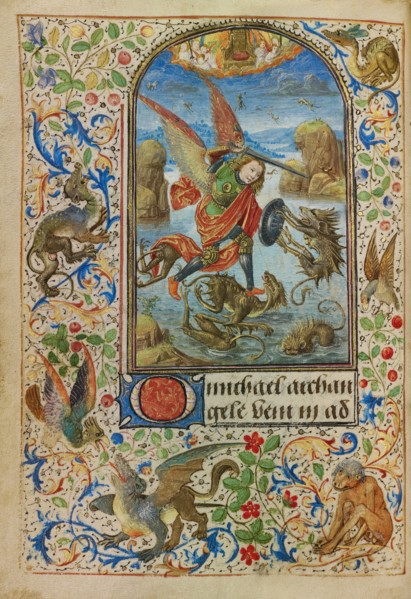 O michael archan
gele veni in ad